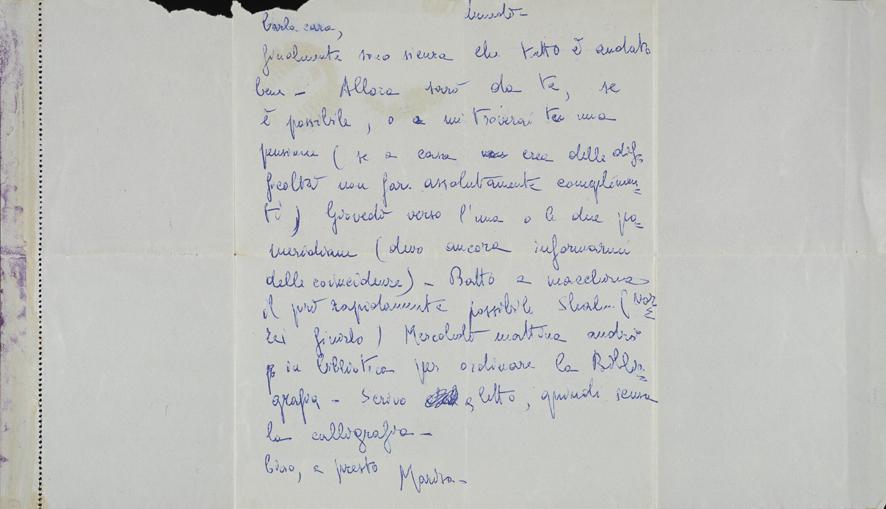 lunedì -
Carla cara,
finalmente sono sicura che tutto è andato
bene - Allora sarò da te, se
è possibile, o mi troverai una
pensione ( se a casa crea delle dif=
ficoltà non far assolutamente complimen=
ti ) Giovedì verso l'una o le due po=
meridiane (devo ancora informarmi
delle coincidenze) - Batto a macchina
il più rapidamente possibile (Vor=
rei finirlo ) Mercoledì mattina andrò
in biblioteca per ordinare la Biblio=
grafia - Scrivo a letto, quindi scusa
la calligrafia -
Ciao, a presto
Marisa -